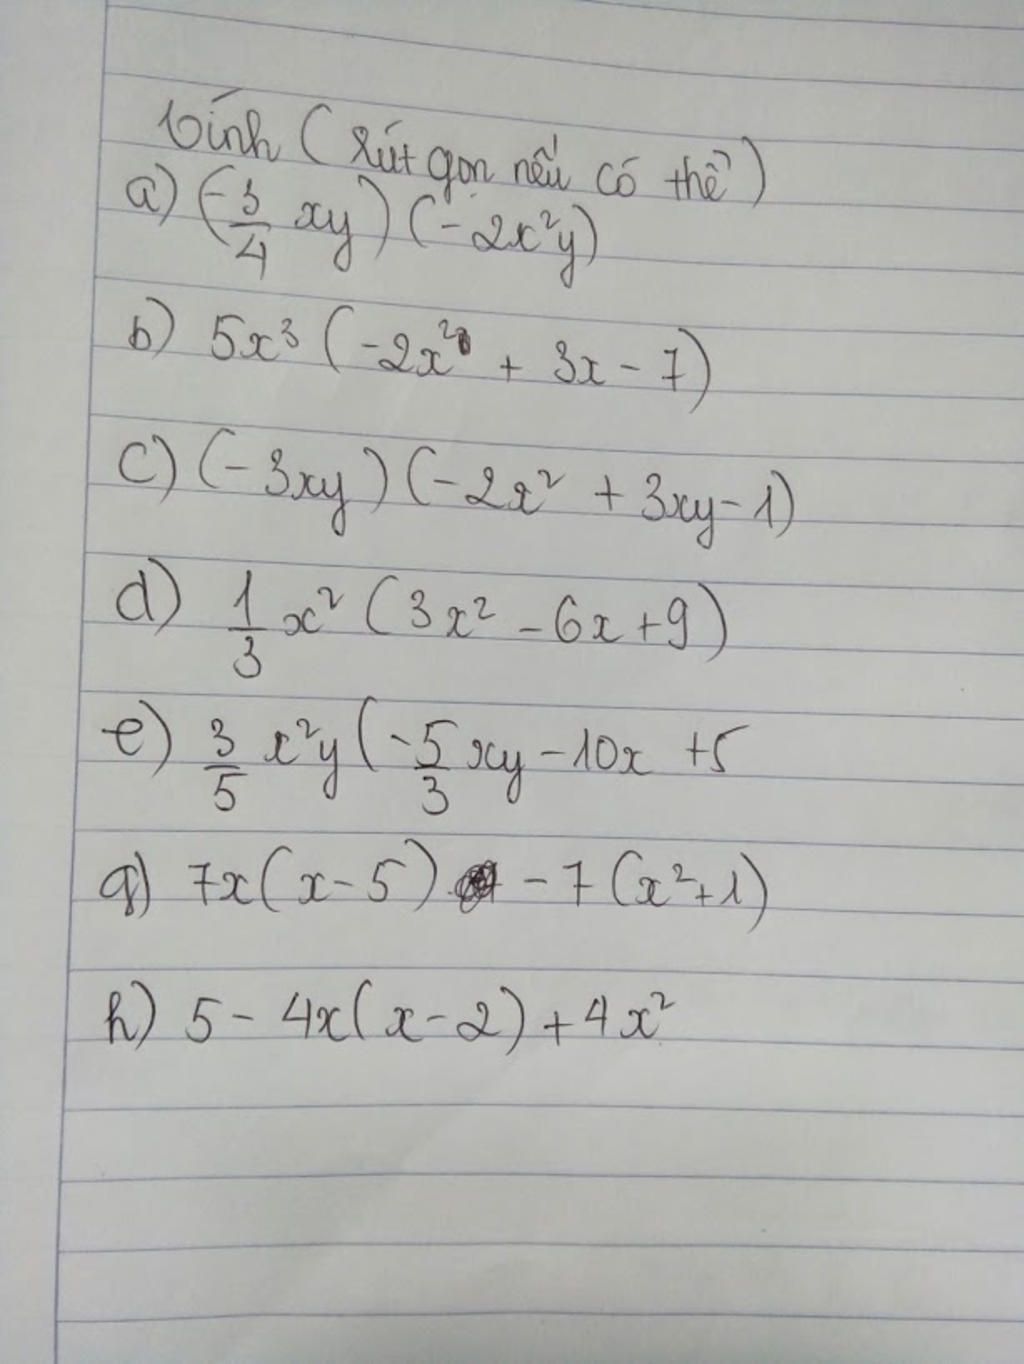 tính (rút gọn nếu có thể)
a) (-3/4 xy)(-2x²y)
b) 5x³(-2x² + 3x - 7)
c) (-3xy)(-2x² + 3xy - 1)
d) 1/3 x² (3x² - 6x + 9)
e) 3/5 x²y(-5/3 xy - 10x + 5
g) 7x(x - 5) - 7(x² + 1)
h) 5 - 4x(x - 2) + 4x²